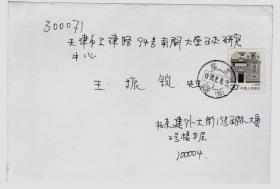 300071
天津市卫津路94号南開大学日本研究
中心
王振锁 先生
北京建外大街19号国际大厦
2号楼5层
100004
20
中国人民邮政